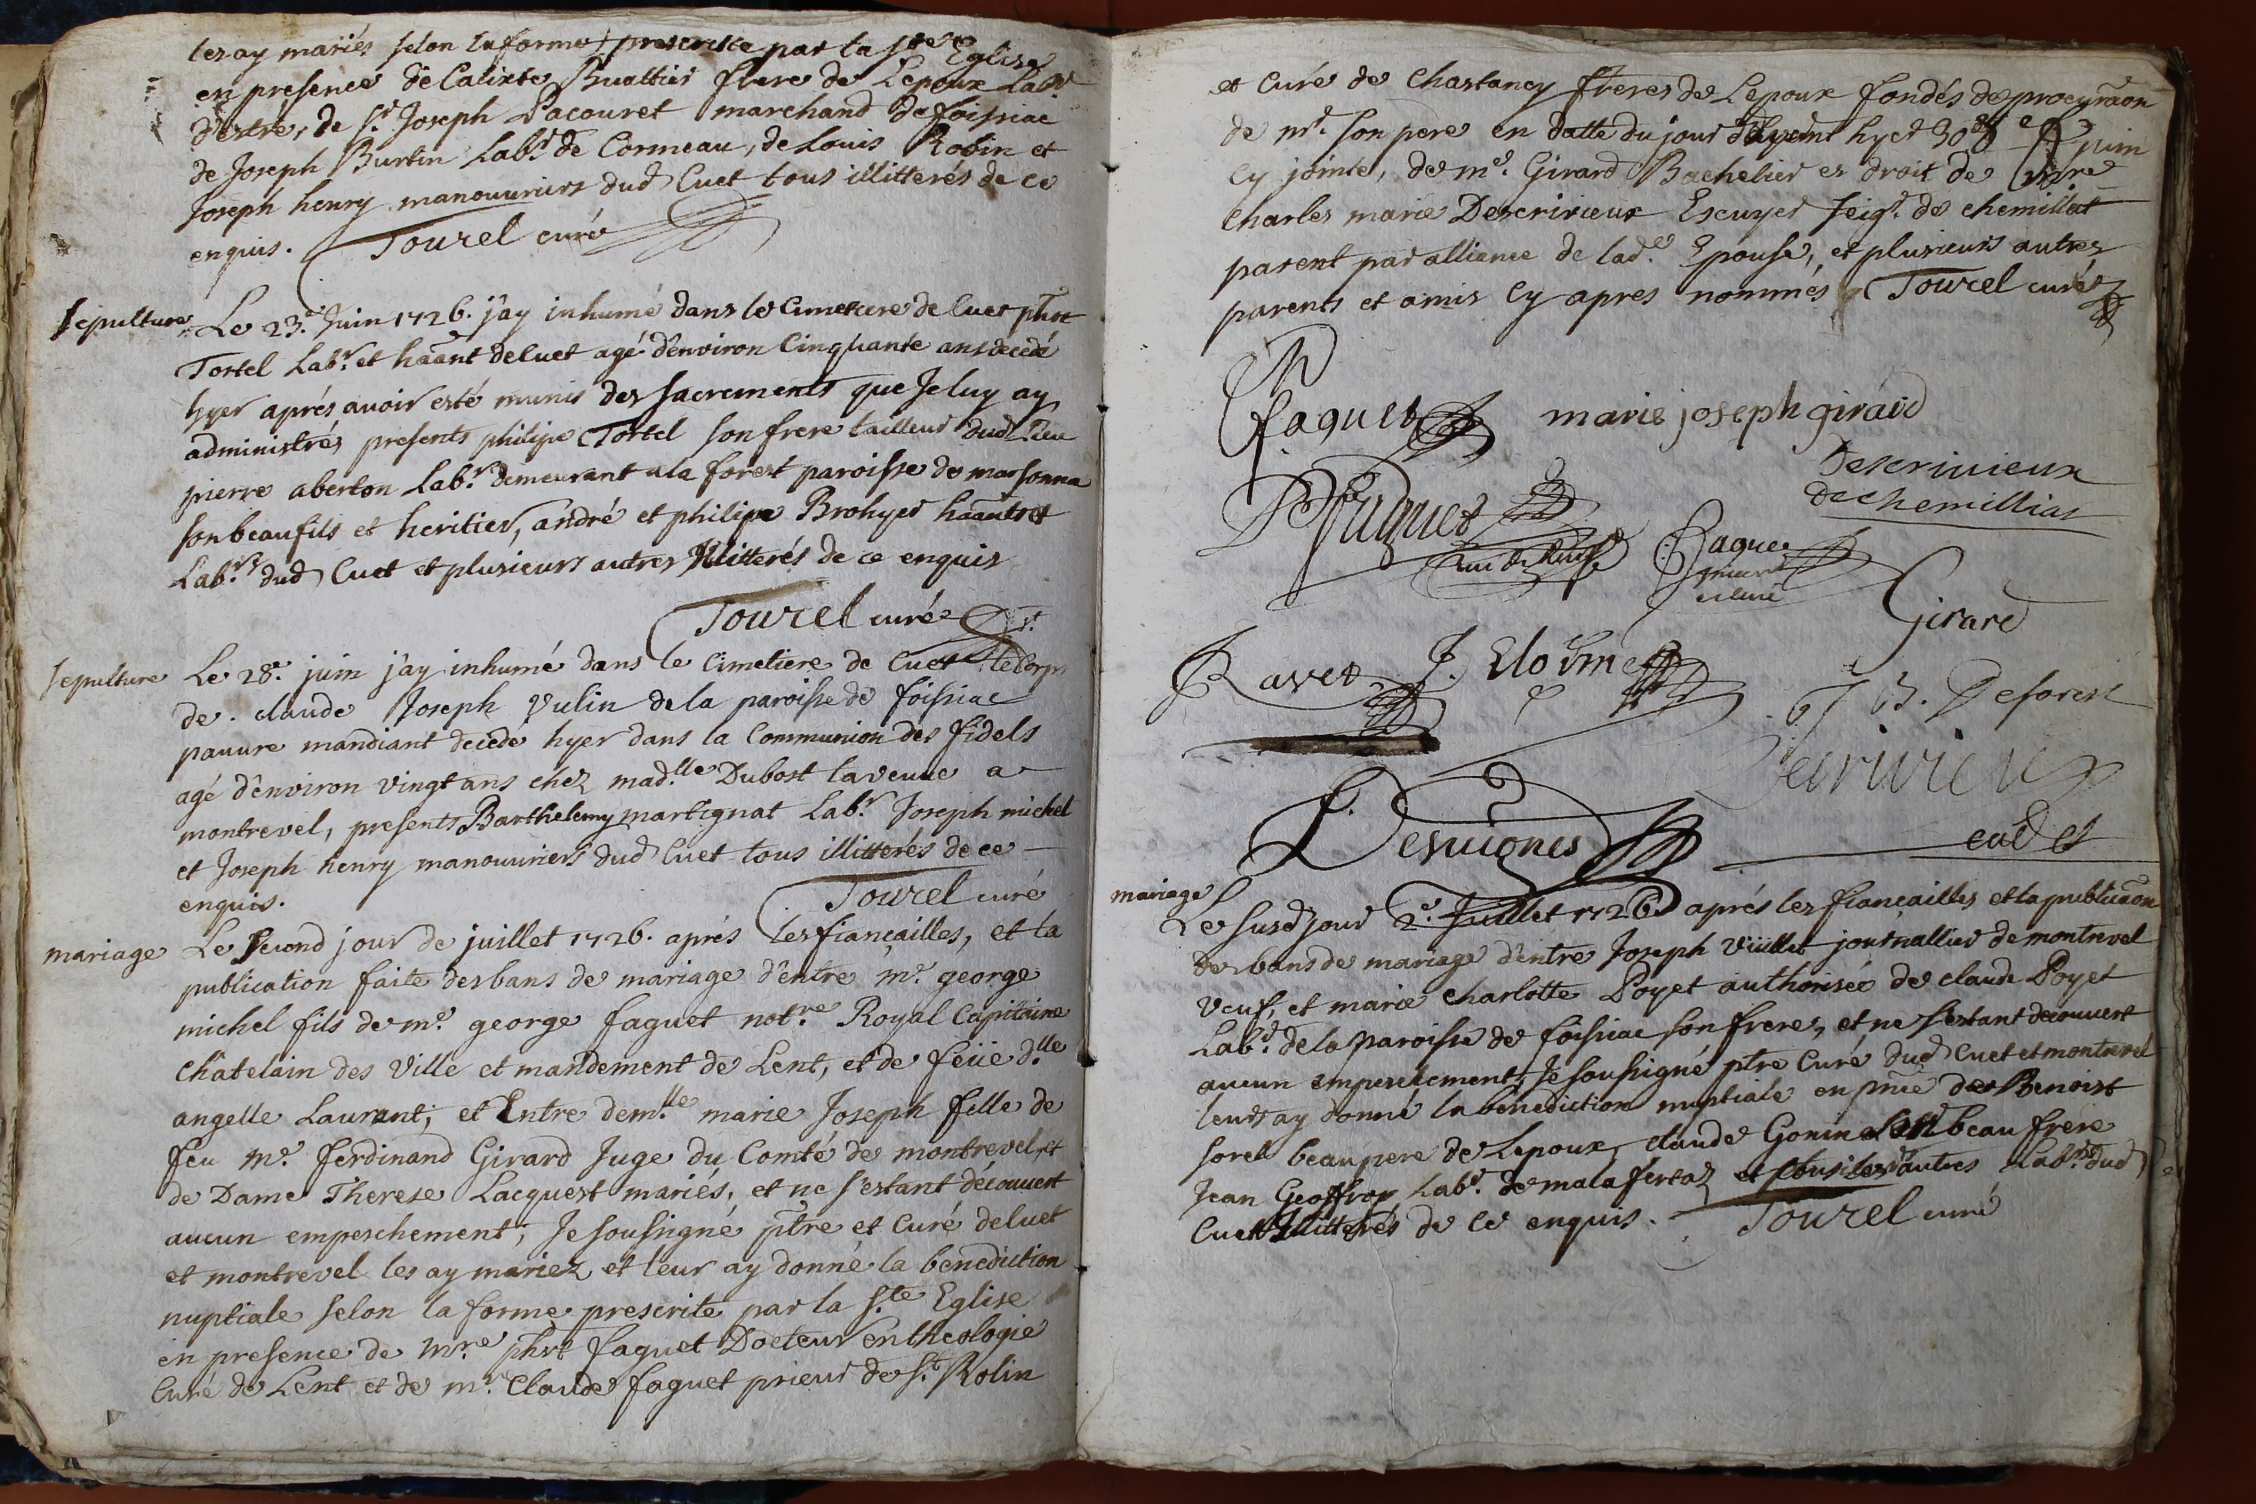 les ay mariés selon la forme prescrite par la ste Eglise
en presence de Calixte Buattier frere de Lepoux Labr
d'estre, de sr Joseph Pacouret marchand de foissiac
de Joseph Burtin Labr de Cormeau, de Louis Robin et
Joseph henry manouuriers dud Cuet tous illitterés de ce
enquis. Tourel curé
sepulture Le 23e Juin 1726. j'ay inhumé dans le Cimetiere de Cuet phbt
Tortel Labr et haant de Cuet agé d'environ Cinquante ans decedé
hyer aprés auoir esté munis des sacrements que Je luy ay
administrés presents philipe Tortel son frere tailleur dud Lieu
pierre aberton Labr demeurant a la forest paroisse de marsonna
son beaufils et heritier, andré et philipe Brohyer haants et
Labrs dud Cuet et plusieurs autres Illitterés de ce enquis
Tourel curé
sepulture Le 28e juin j'ay inhumé dans le Cimetiere de Cuet le Corps
de claude Joseph Vulin de la paroisse de foissiac
pauure mandiant decedé hyer dans la Communion des fidels
agé d'environ vingt ans chez madlle Dubost la veuue a
montrevel, presents Barthelemy martignat Labr Joseph michel
et Joseph henry manouuriers dud Cuet tous illitterés de ce
enquis. Tourel curé
mariage Le second jour de juillet 1726. aprés les fiancailles, et la
publication faite des bans de mariage d'entre mr george
michel fils de me george faguet notre Royal Capitaine
châtelain des Ville et mandement de Lent, et de feüe dlle
angelle Laurant, et Entre demlle marie Joseph fille de
feu me ferdinand Girard Juge du Comté de montrevel, et
de Dame Therese Lacquest mariés, et ne s'estant découuert
aucun empeschement, Je soussigné ptre et Curé de Cuet
et montrevel les ay mariez et leur ay donné la benediction
nuptiale selon la forme prescrite par la ste Eglise
en presence de mre phbt faguet Docteur en theologie
Curé de Lent et de mr Claude faguet prieur de st Rolin
et Curé de Chastancy freres de Lepoux fondés de procuraon
de mr son pere en datte du jour hyer 30e juin
cy jointe, de me Girard Bachelier es droit de mre
Charles marie Descrivieux Escuyer seigr de chemillat
parent par alliance de lade Epouse, et plusieurs autres
parents et amis Cy apres nommés Tourel curé
faguet marie joseph giraud
descriuieux
de chemillias
faguet
prieur
et curé
Girard
Ravet J.
Deforest
Descrivieux
cadet
Desuignes
mariage Le susd jour 2e Juillet 1726. aprés les fiançailles et la publicaon
des bans de mariage d'entre Joseph Viüllet journallier de montrevel
veuf, et marie Charlotte Poyet authorisée de claude Poyet
Labr de la paroisse de foissiac son frere, et ne s'estant decouuert
aucun empeschement, Je soussigné ptre Curé dud Cuet et montrevel
leur ay donné la benediction nuptiale en pnce de Benoist
sorel beaupere de Lepoux, claude Gonin son beau frere
Jean Geoffroy Labr de malafertaz et plusieurs autres Labrs dud
Cuet Illitterés de ce enquis. Tourel curé